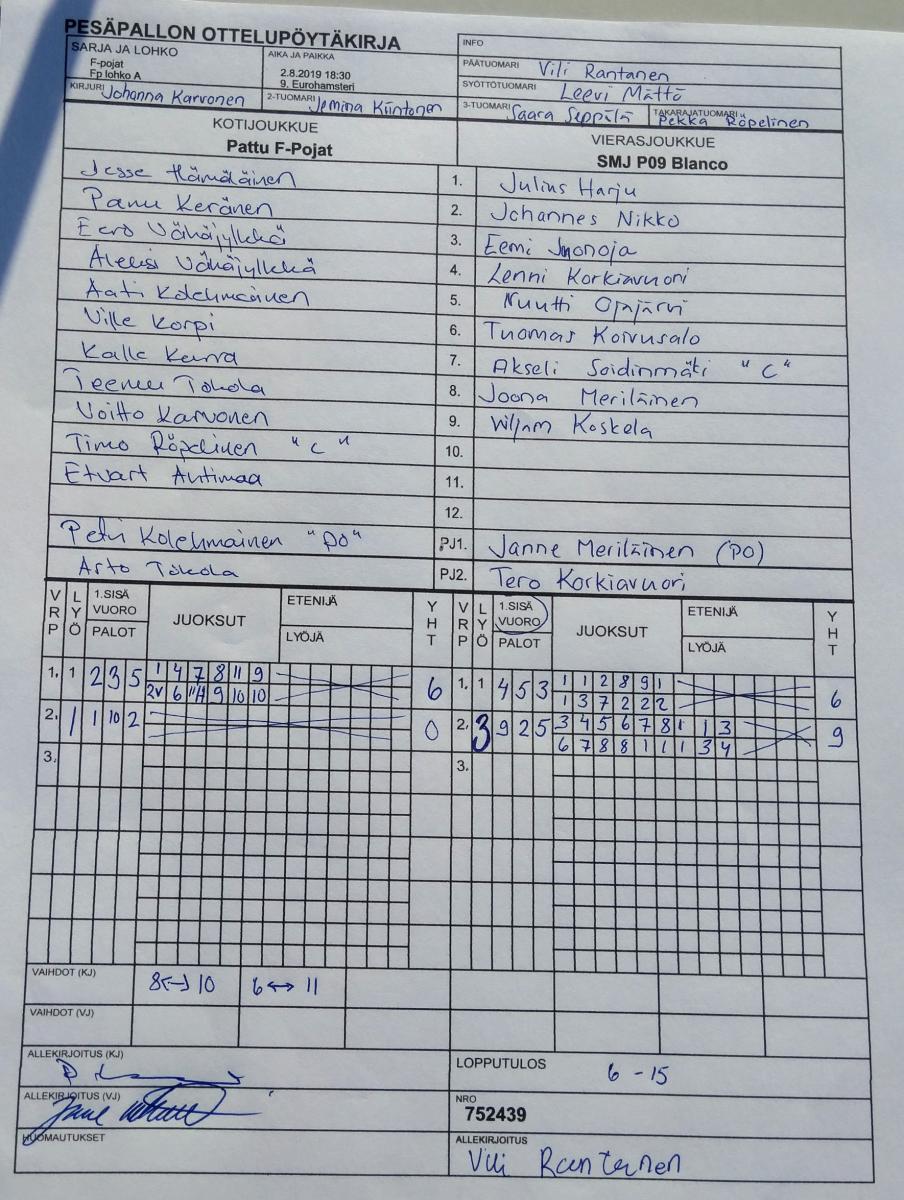 PESÄPALLON OTTELUPÖYTÄKIRJA
SARJA JA LOHKO
F-pojat
Fp lohko A
AIKA JA PAIKKA
2.8.2019 18:30
9. Eurohamsteri
INFO
PÄÄTUOMARI Vili Rantanen
SYÖTTÖTUOMARI Leevi Mättö
KIRJURI Johanna Karvonen
2-TUOMARI Jemina Kiintonen
3-TUOMARI Saara Seppälä
TAKARAJATUOMARI Pekka Röpelinen
KOTIJOUKKUE
Pattu F-Pojat
VIERASJOUKKUE
SMJ P09 Blanco
Jesse Hämäläinen 1. Julius Harju
Panu Keränen 2. Johannes Nikko
Eero Vähäjylkkä 3. Eemi Juonoja
Aleksi Vähäjylkkä 4. Lenni Korkiavuori
Aati Kolehmainen 5. Nuutti Ojajärvi
Ville Korpi 6. Tuomas Koivusalo
Kalle 7. Akseli Soidinmäki "C"
Teemu Tokola 8. Joona Meriläinen
Voitto Karvonen 9. Viljam Koskela
Timo Röpelinen "C" 10.
Etuart Antimaa 11.
12.
Petri Kolehmainen "PO" PJ1. Janne Meriläinen (PO)
Arto Tokola PJ2. Tero Korkiavuori
VRP LYÖ 1.SISÄ VUORO PALOT JUOKSUT ETENIJÄ LYÖJÄ YHT VRP LYÖ 1.SISÄ VUORO PALOT JUOKSUT ETENIJÄ LYÖJÄ YHT
1. 1 2 3 5 1 4 7 8 11 9 6 1. 1 4 5 3 1 1 2 8 9 1 6
2v 6 9 10 10 1 3 7 2 2 2
2. 1 1 10 2 0 2. 3 9 2 5 3 4 5 6 7 8 1 1 3 9
6 7 8 8 1 1 1 3 4
3. 3.
VAIHDOT (KJ) 8↔10 6↔11
VAIHDOT (VJ)
ALLEKIRJOITUS (KJ)
LOPPUTULOS 6 - 15
ALLEKIRJOITUS (VJ)
NRO
752439
HUOMAUTUKSET
ALLEKIRJOITUS
Vili Rantanen